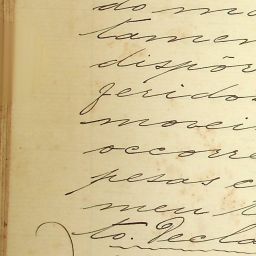 do m
tamen
dispôr
feridos
morei
occorre
pesas e
meu
to. Decla